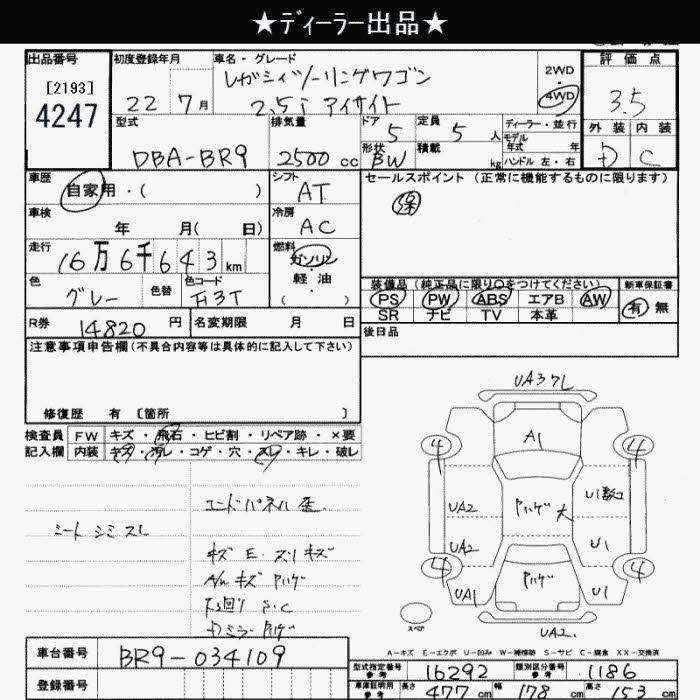 ★ディーラー出品★
出品番号 初度登録年月 車名・グレード 評価点
[2193] レガシィツーリングワゴン 2WD
4247 22 7月 2.5i アイサイト 4WD 3.5
型式 排気量 ドア 定員 ディーラー・並行 外装 内装
DBA-BR9 2500cc 5 5人 モデル年式 年
形状 BW 積載 kg ハンドル 左・右 D C
車歴 シフト セールスポイント (正常に機能するものに限ります)
自家用・( ) AT 保
車検 冷房
年 月( 日) AC
走行 燃料
16万6千643km ガソリン・軽油・( )
色 色替 色コード 装備品 (純正品に限り○をつけてください) 新車保証書
グレー PS PW ABS エアB AW 有 無
SR ナビ TV 本革
R券 14820円 名変期限 月 日 後日品
注意事項申告欄(不具合内容等は具体的に記入して下さい)
修復歴 有 [箇所 ]
検査員 FW キズ・飛石・ヒビ割・リペア跡・×要
記入欄 内装 キズ・汚レ・コゲ・穴・スレ・キレ・破レ
UA37L
4 A1 4
エンドパネル歪
シート シミ スレ
UA2 ハゲ大 U1数コ
UA2 U1
キズ E・スリキズ
A/W キズ ハゲ
4 ハゲ 4
下回り S.C
UA1 U1
Dミラーハゲ
スペア
UA2.
A-キズ E-エクボ U-凹み W-補修跡 S-サビ C-腐食 XX-交換済
車台番号 BR9-034109 型式指定番号 参考 16292 類別区分番号 参考 1186
登録番号 車庫証明用 参考 長さ 477cm 幅 178cm 高さ 153cm